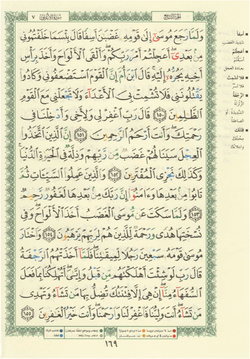 وَلَمَّا رَجَعَ مُوسَىٰٓ إِلَىٰ قَوْمِهِۦ غَضْبَٰنَ أَسِفًا قَالَ بِئْسَمَا خَلَفْتُمُونِى
مِنۢ بَعْدِىٓ أَعَجِلْتُمْ أَمْرَ رَبِّكُمْ وَأَلْقَى ٱلْأَلْوَاحَ وَأَخَذَ بِرَأْسِ
أَخِيهِ يَجُرُّهُۥٓ إِلَيْهِ قَالَ ٱبْنَ أُمَّ إِنَّ ٱلْقَوْمَ ٱسْتَضْعَفُونِى وَكَادُوا۟
يَقْتُلُونَنِى فَلَا تُشْمِتْ بِىَ ٱلْأَعْدَآءَ وَلَا تَجْعَلْنِى مَعَ ٱلْقَوْمِ
ٱلظَّٰلِمِينَ ١٥٠ قَالَ رَبِّ ٱغْفِرْ لِى وَلِأَخِى وَأَدْخِلْنَا فِى
رَحْمَتِكَ وَأَنتَ أَرْحَمُ ٱلرَّٰحِمِينَ ١٥١ إِنَّ ٱلَّذِينَ ٱتَّخَذُوا۟
ٱلْعِجْلَ سَيَنَالُهُمْ غَضَبٌ مِّن رَّبِّهِمْ وَذِلَّةٌ فِى ٱلْحَيَوٰةِ ٱلدُّنْيَا
وَكَذَٰلِكَ نَجْزِى ٱلْمُفْتَرِينَ ١٥٢ وَٱلَّذِينَ عَمِلُوا۟ ٱلسَّيِّـَٔاتِ ثُمَّ
تَابُوا۟ مِنۢ بَعْدِهَا وَءَامَنُوٓا۟ إِنَّ رَبَّكَ مِنۢ بَعْدِهَا لَغَفُورٌ رَّحِيمٌ
١٥٣ وَلَمَّا سَكَتَ عَن مُّوسَى ٱلْغَضَبُ أَخَذَ ٱلْأَلْوَاحَ وَفِى
نُسْخَتِهَا هُدًى وَرَحْمَةٌ لِّلَّذِينَ هُمْ لِرَبِّهِمْ يَرْهَبُونَ ١٥٤ وَٱخْتَارَ
مُوسَىٰ قَوْمَهُۥ سَبْعِينَ رَجُلًا لِّمِيقَٰتِنَا فَلَمَّآ أَخَذَتْهُمُ ٱلرَّجْفَةُ
قَالَ رَبِّ لَوْ شِئْتَ أَهْلَكْتَهُم مِّن قَبْلُ وَإِيَّٰىَ أَتُهْلِكُنَا بِمَا فَعَلَ
ٱلسُّفَهَآءُ مِنَّآ إِنْ هِىَ إِلَّا فِتْنَتُكَ تُضِلُّ بِهَا مَن تَشَآءُ وَتَهْدِى
مَن تَشَآءُ أَنتَ وَلِيُّنَا فَٱغْفِرْ لَنَا وَٱرْحَمْنَا وَأَنتَ خَيْرُ ٱلْغَٰفِرِينَ
١٦٩